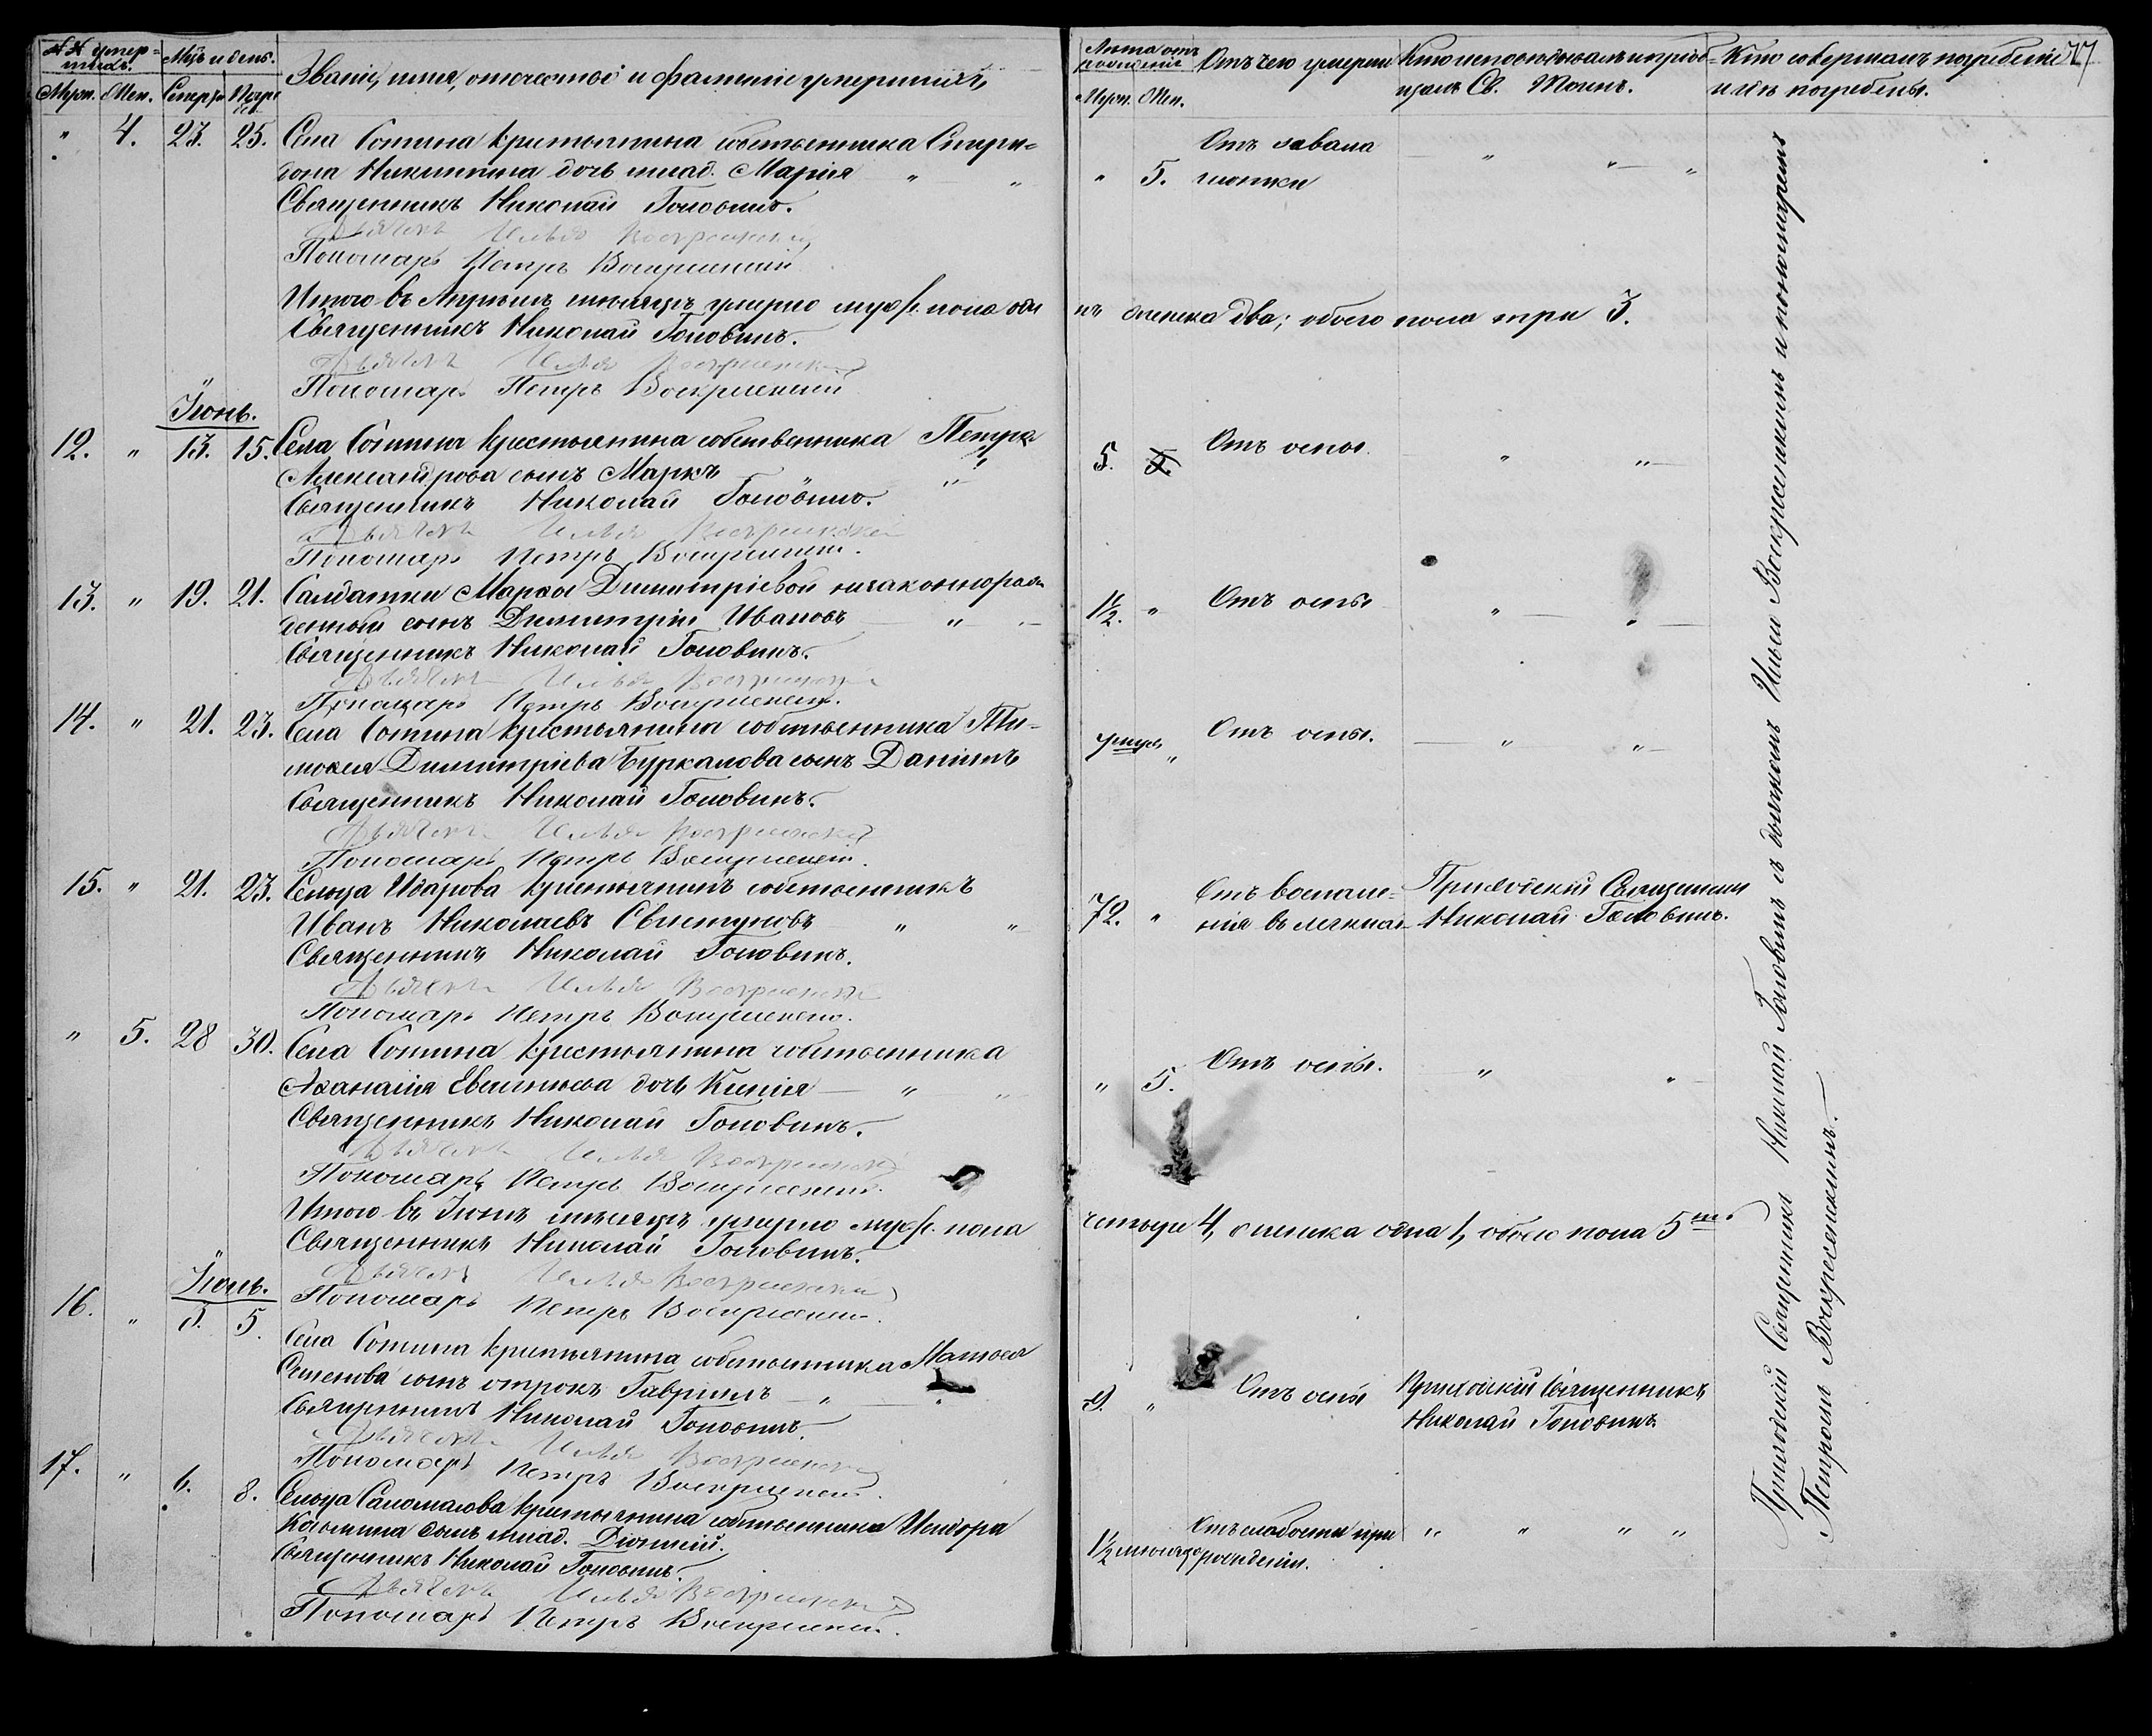 №№ умер-
шихъ.
Муж. Жен.
Мцъ и день.
Смер. Погре
Званіе, имя, отчество и фамилія умершихъ
4. 23. 25. Села Сотина крестьянина собственника Спири-
дона Никитина дочь млад. Марія
Священникъ Николай Головинъ.
Дьячекъ Илья Воскресенскій
Пономарь Петръ Воскресенскій
Итого въ Апрѣлѣ мѣсяцѣ умерло муж. пола оди
Священникъ Николай Головинъ.
Дьячекъ Илья Воскресенскій
Пономарь Петръ Воскресенскій
Іюнь.
12. " 13. 15. Села Сотина крестьянина собственника Петра
Александрова сынъ Маркъ
Священникъ Николай Головинъ.
Дьячекъ Илья Воскресенскій
Пономарь Петръ Воскресенскій.
13. " 19. 21. Салдатки Марѳы Димитріевой незаконнорож
денный сынъ Димитрій Ивановъ
Священникъ Николай Головинъ.
Дьячекъ Илья Воскресенскій
Пономарь Петръ Воскресенскій.
14. " 21. 23. Села Сотина крестьянина собственника Ти-
моѳея Димитріева Буркалова сынъ Даніилъ
Священникъ Николай Головинъ.
Дьячекъ Илья Воскресенскій
Пономарь Петръ Воскресенскій.
15. " 21. 23. Сельца крестьянинъ собственникъ
Иванъ Николаевъ Свистуновъ
Священникъ Николай Головинъ.
Дьячекъ Илья Воскресенскій
Пономарь Петръ Воскресенскій.
" 5. 28 30. Села Сотина крестьянина собственника
Аѳанасія дочь Ксенія
Священникъ Николай Головинъ.
Дьячекъ Илья Воскресенскій
Пономарь Петръ Воскресенскій.
Итого въ Іюнѣ мѣсяцѣ умерло муж. пола
Священникъ Николай Головинъ.
Дьячекъ Илья Воскресенскій
Пономарь Петръ Воскресенскій.
Іюль.
16. " 5. Села Сотина крестьянина собственника Матвея
Семенова сынъ отрокъ Гавріилъ
Священникъ Николай Головинъ.
Дьячекъ Илья Воскресенскій
Пономарь Петръ Воскресенскій.
17. " 6. 8. Сельца крестьянина собственника Исидора
Косьмина сынъ млад. Діонисій.
Священникъ Николай Головинъ.
Дьячекъ Илья Воскресенскій
Пономарь Петръ Воскресенскій.
Лѣта отъ
рожденія
Муж. Жен.
Отъ чего умерли
Кто исповѣдовалъ и пріоб-
щалъ Св. Тоинъ.
Кто совершалъ погребеніе
и гдѣ погребены.
77
" 5. Отъ завала
глотки
нъ женска два; обоего пола три 3.
5. Отъ оспы.
1½. " Отъ оспы
" Отъ оспы.
72. " Отъ воспале-
нія въ легкихъ
Приходскій Священникъ
Николай Головинъ.
" 5. Отъ оспы.
четыре 4, женска одна 1, обоего пола 5ть
9. " Отъ оспы
Приходскій Священникъ
Николай Головинъ.
1½ мѣсяца Отъ слабости при
рожденіи.
Приходскій Священникъ Николай Головинъ съ дьячкомъ Ильею Воскресенскимъ и пономаремъ
Петромъ Воскресенскимъ.